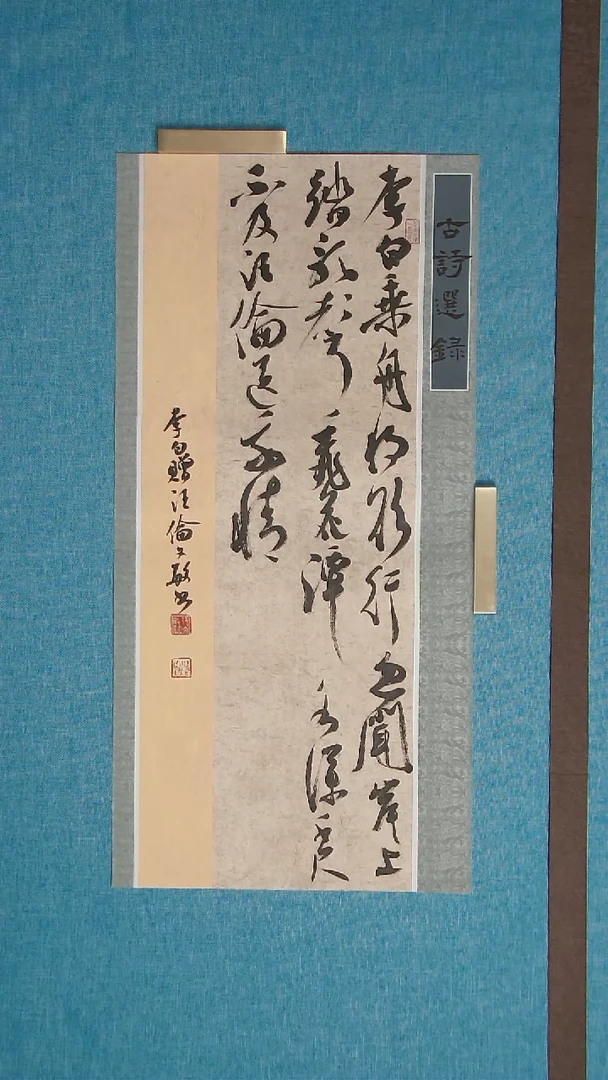 古詩選錄
李白乘舟将欲行忽聞岸上
踏歌聲桃花潭水深千尺
不及汪倫送我情
李白贈汪倫文敏书